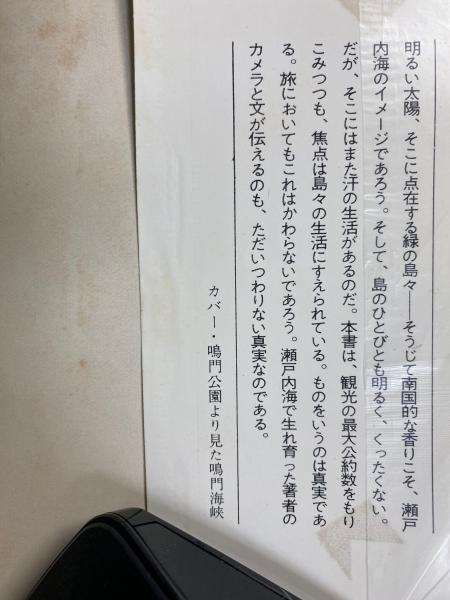 明るい太陽、そこに点在する緑の島々――そうじて南国的な香りこそ、瀬戸
内海のイメージであろう。そして、島のひとびとも明るく、くったくない。
だが、そこにはまた汗の生活があるのだ。本書は、観光の最大公約数をもり
こみつつも、焦点は島々の生活にすえられている。ものをいうのは真実であ
る。旅においてもこれはかわらないであろう。瀬戸内海で生れ育った著者の
カメラと文が伝えるのも、ただいつわりない真実なのである。
カバー・鳴門公園より見た鳴門海峡